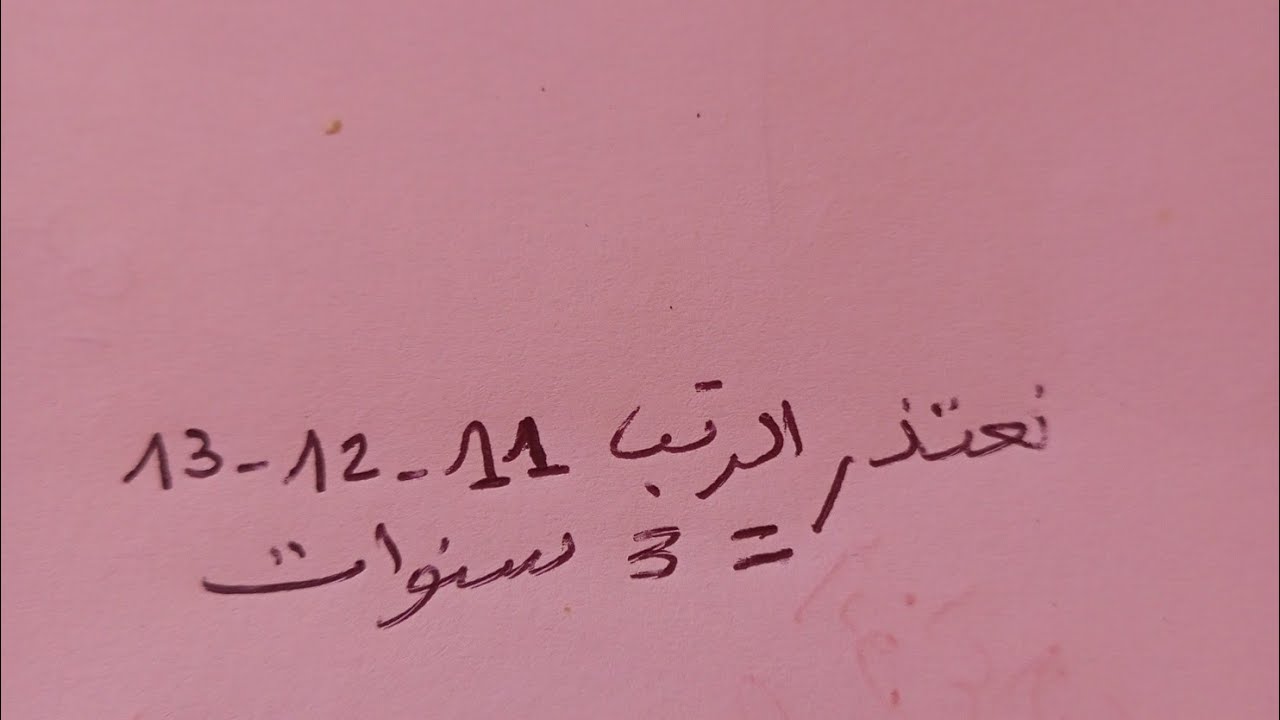 نعتذر الرتب 11-12-13
= 3 سنوات